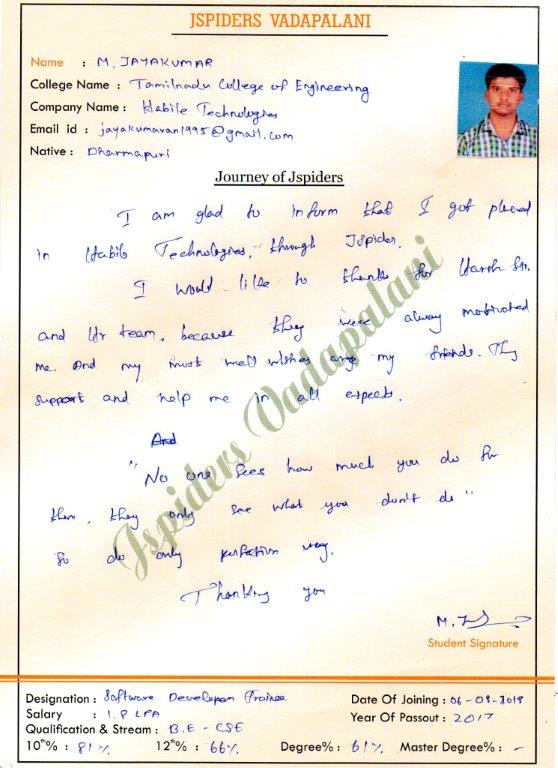 JSPIDERS VADAPALANI
Name : M. JAYAKUMAR
College Name : Tamilnadu College of Engineering
Company Name : Habile Technologies
Email id : jayakumaran1995@gmail.com
Native : Dharmapuri
Journey of Jspiders
I am glad to inform that I got placed
in Habile Technologies, through Jspider.
I would like to thanks for Harsh Sir.
and Hr team, because they were alway motivated
me. And my most well wishes are my friends. They
support and help me in all expects.
And
"No one sees how much you do for
them, they only see what you don't do"
So do only perfection way.
Thanking you
Jspiders Vadapalani
M. J
Student Signature
Designation : Software Developer Trainee
Date Of Joining : 06-08-2018
Salary : 1.8 LPA
Year Of Passout : 2017
Qualification & Stream : B.E - CSE
10th% : 81% 12th% : 66% Degree% : 61% Master Degree% : -